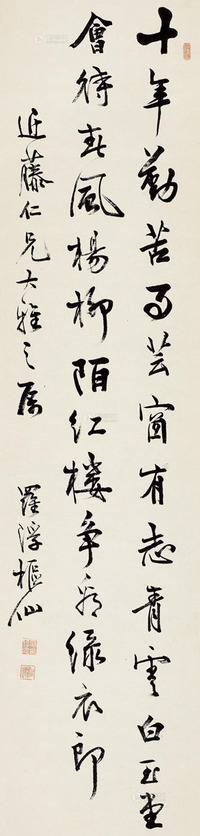 十年勤苦事芸窗有志青雲白玉堂
會待春風楊柳陌紅樓爭看綠衣郎
近藤仁兄大雅之屬
羅浮樵仙